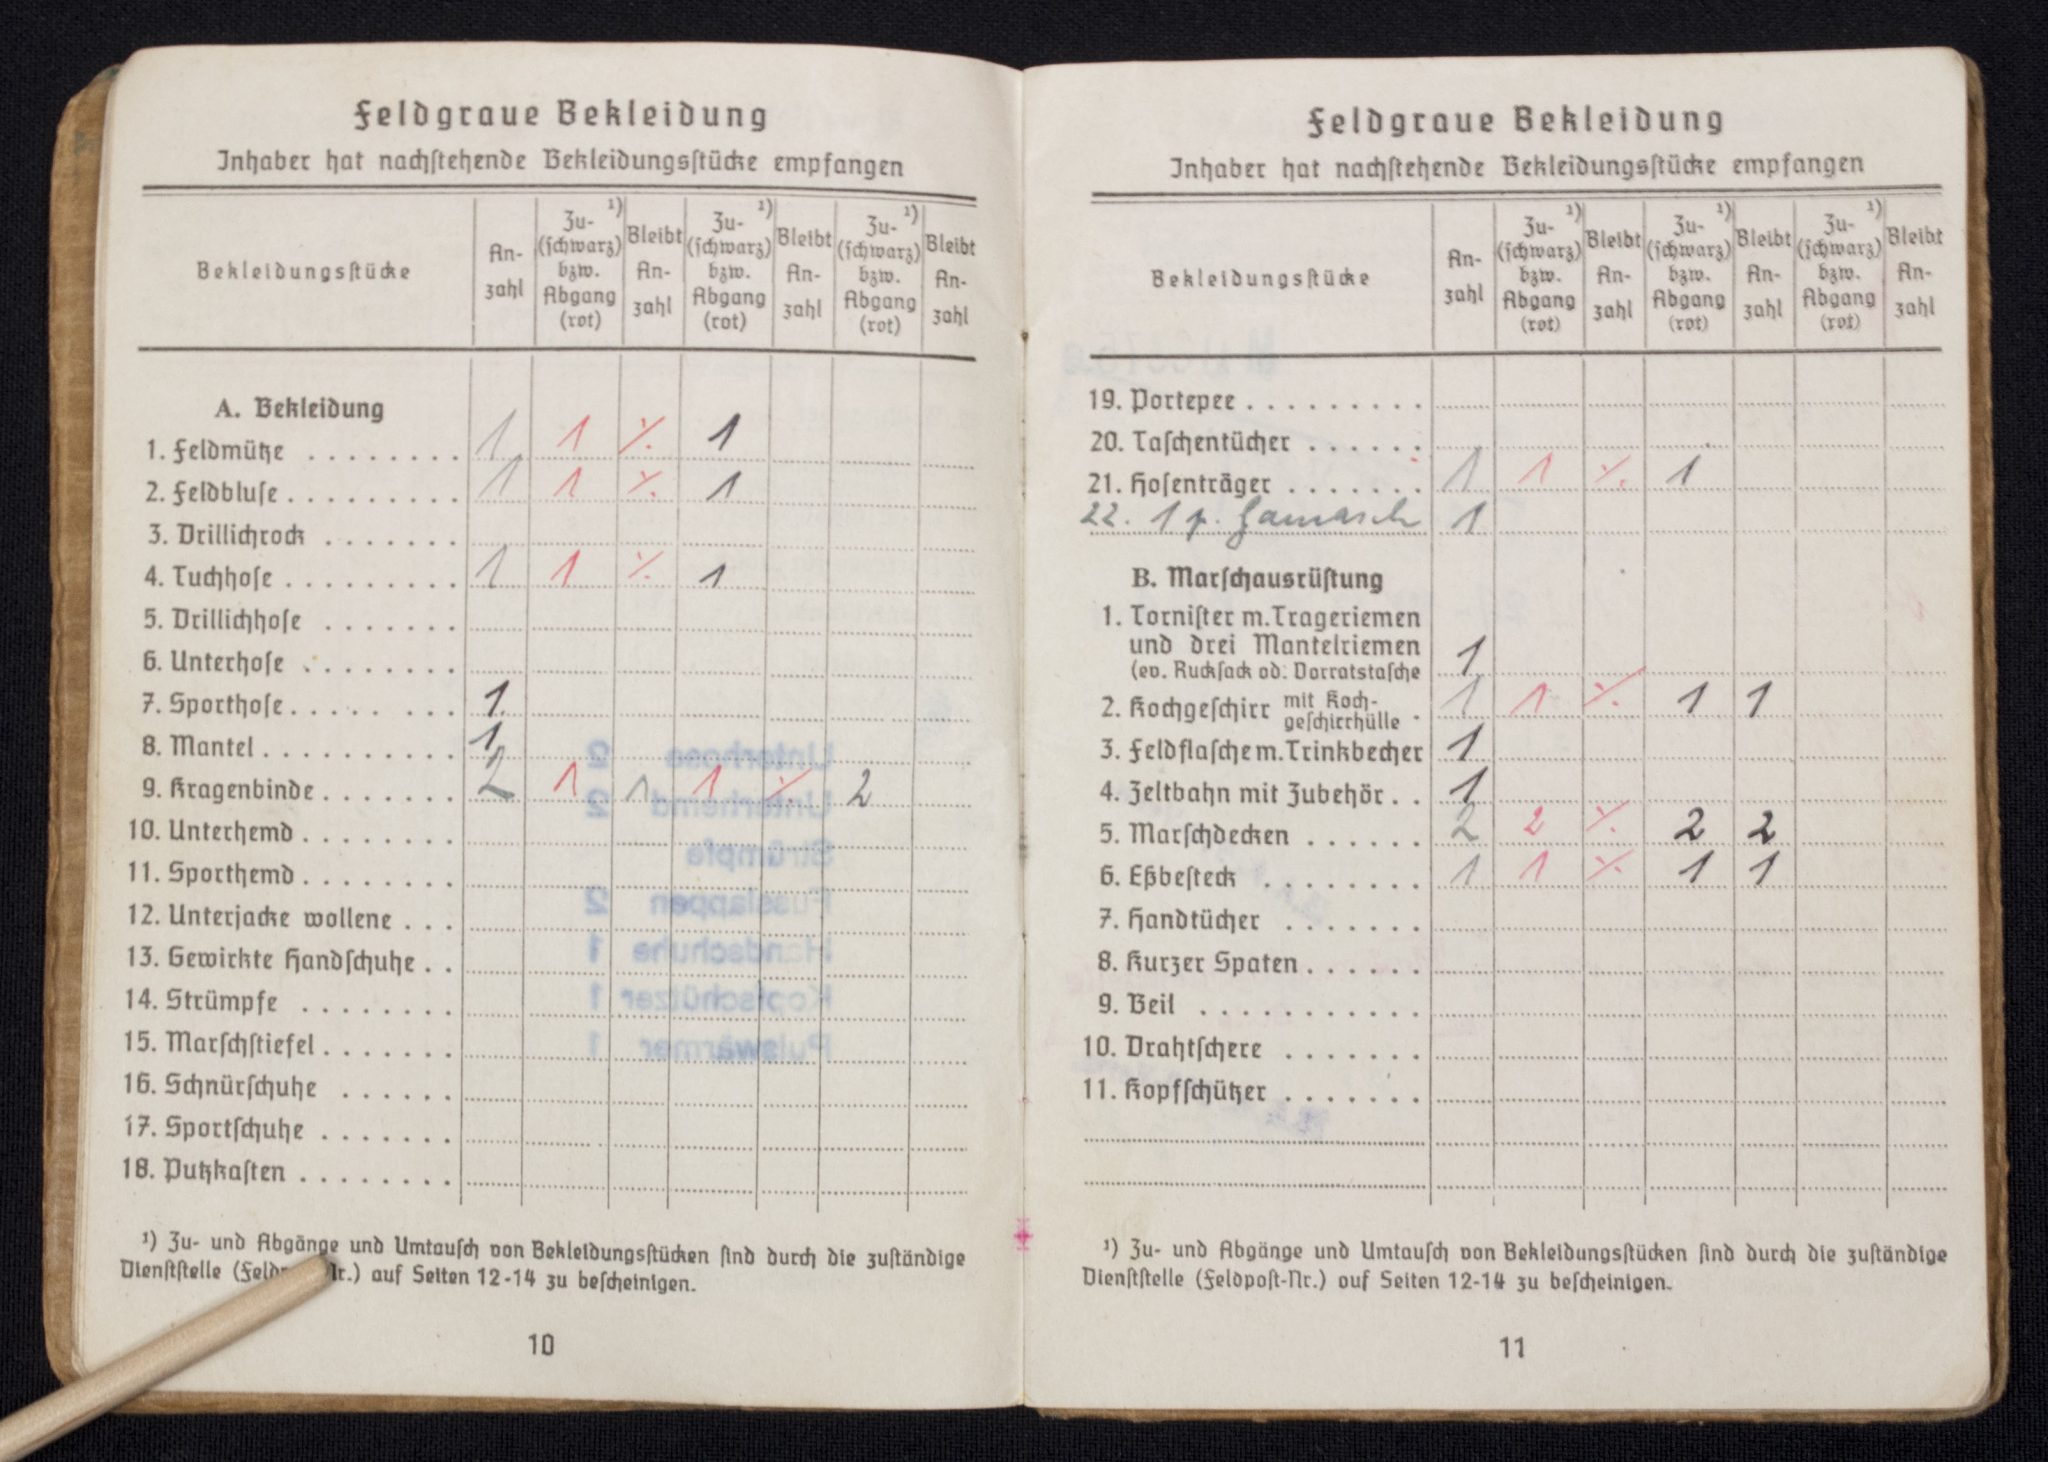 Feldgraue Bekleidung
Inhaber hat nachſtehende Bekleidungsſtücke empfangen
Bekleidungsſtücke | An-zahl | Zu- (ſchwarz) bzw. Abgang (rot) ¹) | Bleibt An-zahl | Zu- (ſchwarz) bzw. Abgang (rot) ¹) | Bleibt An-zahl | Zu- (ſchwarz) bzw. Abgang (rot) ¹) | Bleibt An-zahl
A. Bekleidung
1. Feldmütze . . . . . . . . 1 1 ⁒ 1
2. Feldbluſe . . . . . . . . . 1 1 ⁒ 1
3. Drillichrock . . . . . . .
4. Tuchhoſe . . . . . . . . . 1 1 ⁒ 1
5. Drillichhoſe . . . . . . .
6. Unterhoſe . . . . . . . .
7. Sporthoſe . . . . . . . . 1
8. Mantel . . . . . . . . . . 1
9. Kragenbinde . . . . . . . 2 1 1 1 ⁒ 2
10. Unterhemd . . . . . . . .
11. Sporthemd . . . . . . . .
12. Unterjacke wollene . . .
13. Gewirkte Handſchuhe . .
14. Strümpfe . . . . . . . .
15. Marſchſtiefel . . . . . . .
16. Schnürſchuhe . . . . . .
17. Sportſchuhe . . . . . . .
18. Putzkaſten . . . . . . . .
Unterhose 2
Unterhemd 2
Strümpfe
Fusslappen 2
Handschuhe 1
Kopfschützer 1
Pulswärmer 1
¹) Zu- und Abgänge und Umtauſch von Bekleidungsſtücken ſind durch die zuſtändige
Dienſtſtelle auf Seiten 12-14 zu beſcheinigen.
10
Feldgraue Bekleidung
Inhaber hat nachſtehende Bekleidungsſtücke empfangen
Bekleidungsſtücke | An-zahl | Zu- (ſchwarz) bzw. Abgang (rot) ¹) | Bleibt An-zahl | Zu- (ſchwarz) bzw. Abgang (rot) ¹) | Bleibt An-zahl | Zu- (ſchwarz) bzw. Abgang (rot) ¹) | Bleibt An-zahl
19. Portepee . . . . . . . . .
20. Taſchentücher . . . . . .
21. Hoſenträger . . . . . . . 1 1 ⁒ 1
22. 1 p. Gamasch 1
B. Marſchausrüſtung
1. Torniſter m. Trageriemen
und drei Mantelriemen 1
(ev. Ruckſack od. Vorratstaſche
2. Kochgeſchirr mit Koch-geſchirrhülle . 1 1 ⁒ 1 1
3. Feldflaſche m. Trinkbecher 1
4. Zeltbahn mit Zubehör . . 1
5. Marſchdecken . . . . . . 2 2 ⁒ 2 2
6. Eßbeſteck . . . . . . . . 1 1 ⁒ 1 1
7. Handtücher . . . . . . .
8. Kurzer Spaten . . . . . .
9. Beil . . . . . . . . . . .
10. Drahtſchere . . . . . . .
11. Kopfſchützer . . . . . . .
¹) Zu- und Abgänge und Umtauſch von Bekleidungsſtücken ſind durch die zuſtändige
Dienſtſtelle (Feldpoſt-Nr.) auf Seiten 12-14 zu beſcheinigen.
11